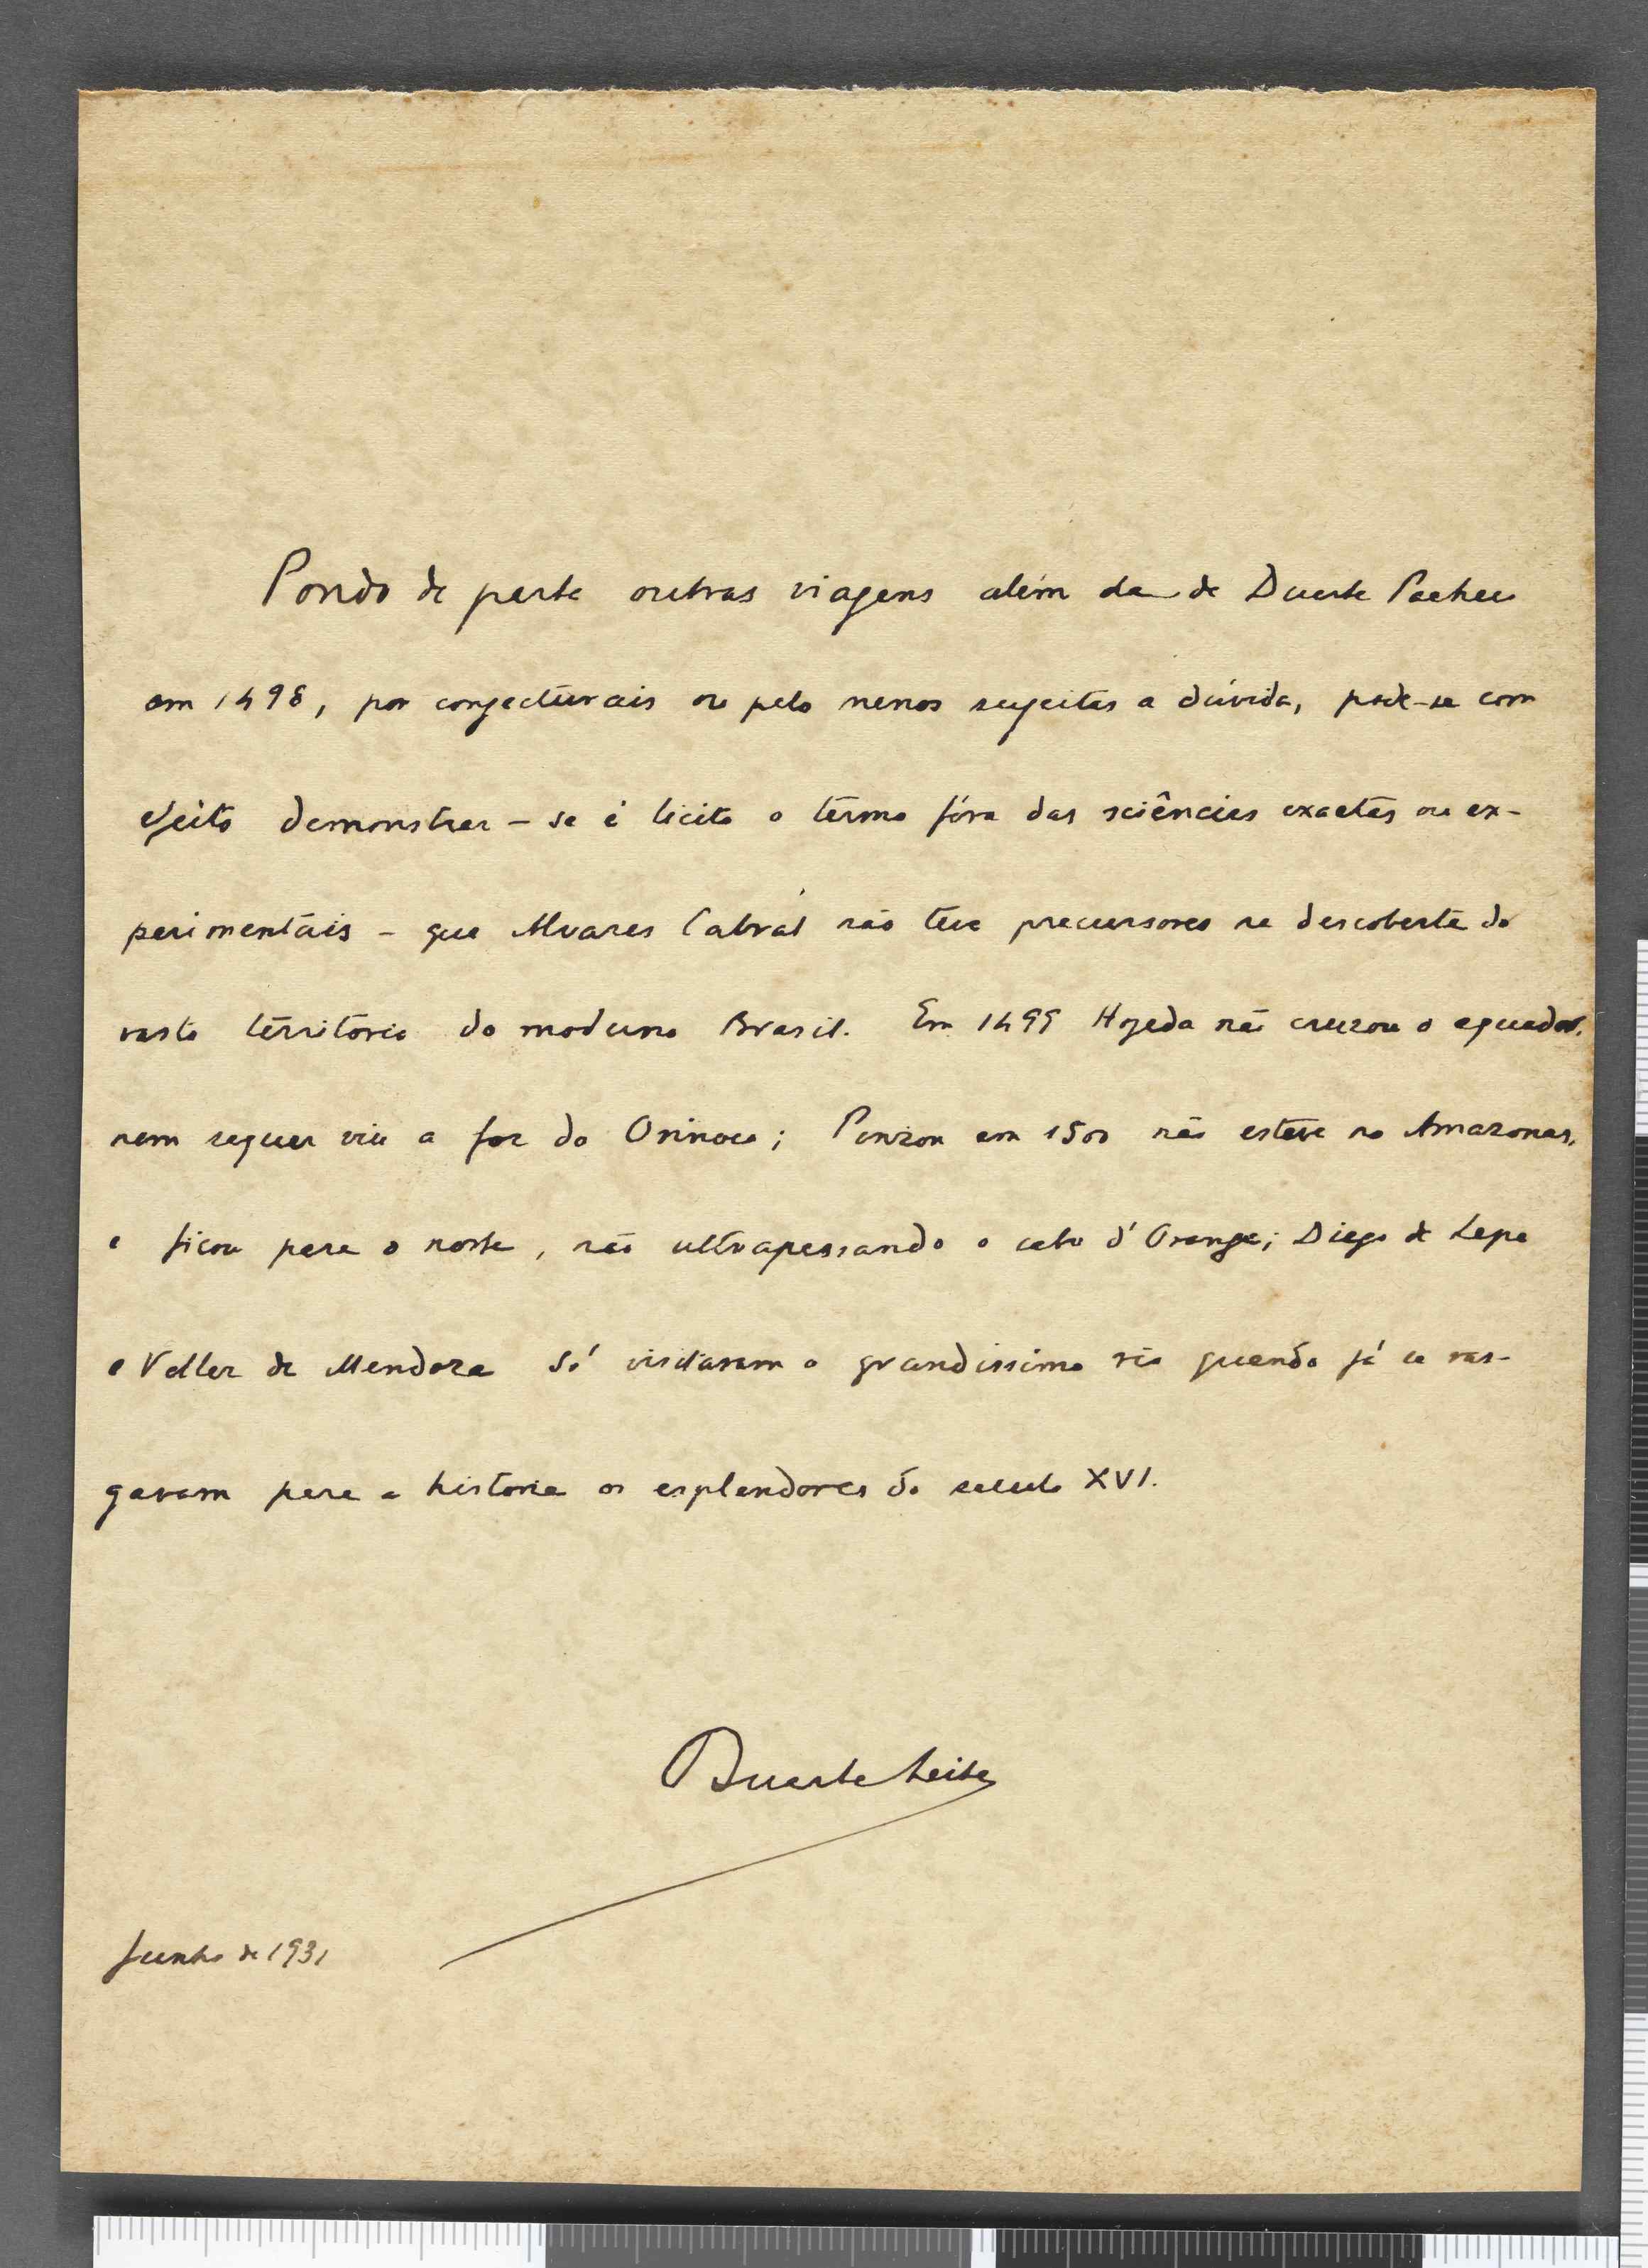 Pondo de parte outras viagens além da de Duarte Pacheco
em 1498, por conjecturais ou pelo menos sujeitas a dúvida, pode-se com
efeito demonstrar - se é licito o têrmo fóra das sciências exactas ou ex-
perimentais - que Alvares Cabral não teve precursores na descoberta do
vasto território do moderno Brasil. Em 1499 Hojeda não cruzou o equador,
nem sequer viu a foz do Orinoco; Pinzon em 1500 não esteve no Amazonas,
e ficou para o norte, não ultrapassando o cabo d'Orange; Diego de Lepe
e Vellez de Mendoza só visitaram o grandissimo rio quando já se ras-
gavam para a historia os esplendores do seculo XVI.
Duarte Leite
Junho de 1931